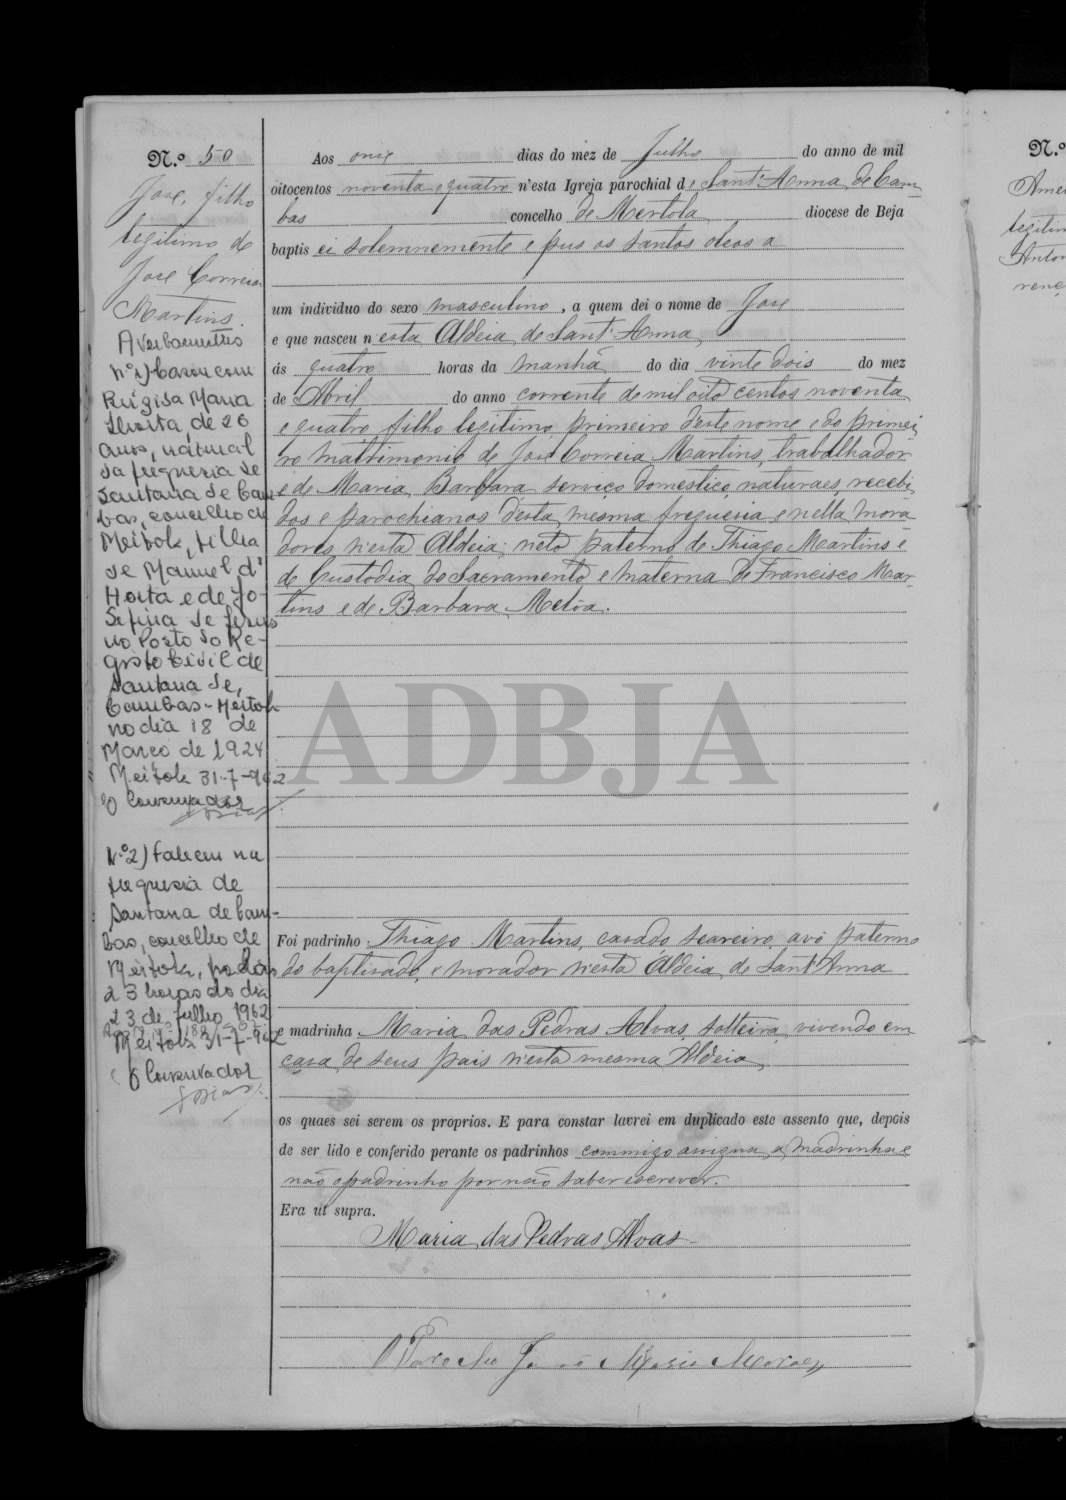 N.º 50
Jose, filho
legitimo de
Jose Correia
Martins.
Averbamentos
Nº1) Casou com
Maria
de 26
anos, natural
da freguesia de
Santana de Cam-
bas, concelho de
Mertola, filha
de Manuel d'
Horta e de Jo-
sefina de Jesus
no Posto do Re-
gisto Civil de
Santana de
Cambas-Mertola
no dia 18 de
Março de 1924
Mertola 31-7-962
O Conservador
N.º2) Faleceu na
freguesia de
Santana de Cam-
bas, concelho de
Mertola,
23 horas do dia
23 de Julho 1962
Mertola 31-7-962
O Conservador
Aos onze dias do mez de Julho do anno de mil
oitocentos noventa e quatro n'esta Igreja parochial de Sant'Anna de Cam-
bas concelho de Mertola diocese de Beja
baptisei solemnemente e pus os santos oleos a
um individuo do sexo masculino, a quem dei o nome de Jose
e que nasceu n'esta Aldeia de Sant'Anna
ás quatro horas da manhã do dia vinte dois do mez
de Abril do anno corrente de mil oito centos noventa
e quatro filho legitimo, primeiro deste nome e do primei-
ro matrimonio de Jose Correia Martins, trabalhador
e de Maria Barbara serviço domestico, naturaes, recebi-
dos e parochianos desta mesma freguesia e nella mora-
dores n'esta Aldeia; neto paterno de Thiago Martins e
de Custodia do Sacramento e materna de Francisco Mar-
tins e de Barbara
ADBJA
Foi padrinho Thiago Martins, casado seareiro, avô paterno
do baptisado, e morador n'esta Aldeia de Sant'Anna
e madrinha Maria das Pedras Alvas, solteira, vivendo em
casa de seus pais n'esta mesma Aldeia,
os quaes sei serem os proprios. E para constar lavrei em duplicado este assento que, depois
de ser lido e conferido perante os padrinhos commigo assigna a madrinha e
não o padrinho por não saber escrever.
Era ut supra.
Maria das Pedras Alvas
O Parocho Moraes
N.º
legitim
Anton